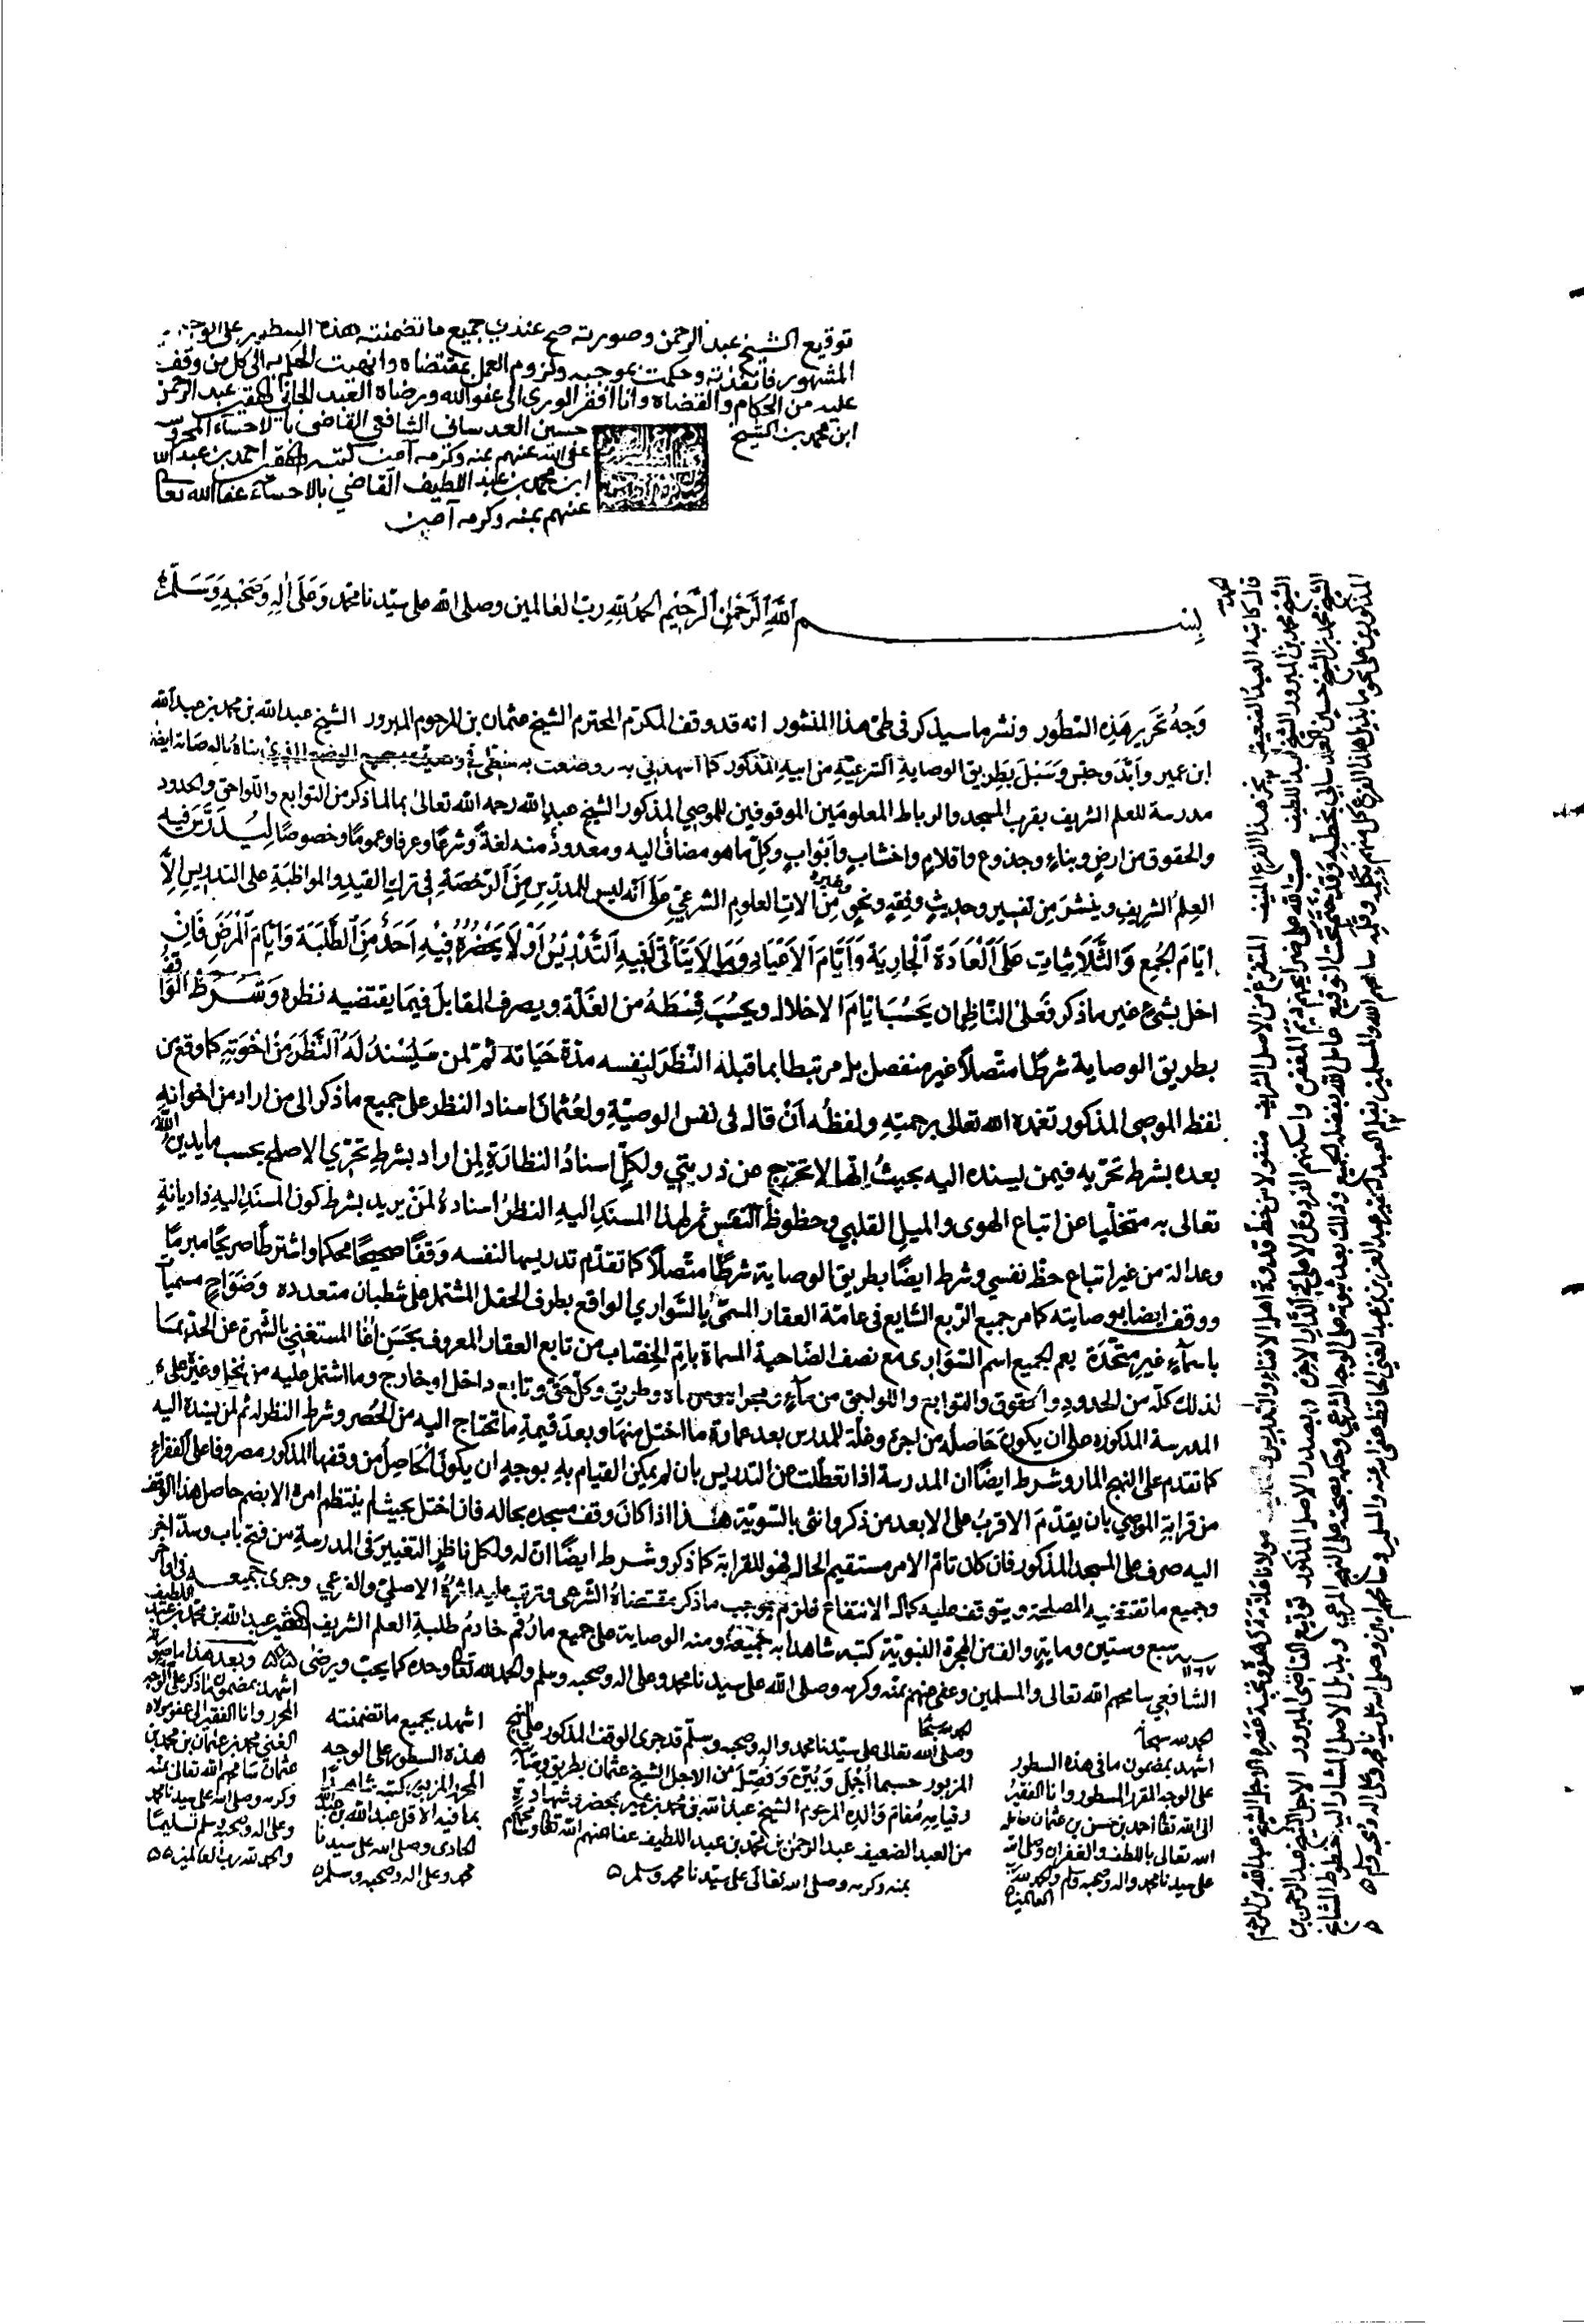 توقيع الشيخ عبد الرحمن وصورته صح عندي جميع ما تضمنته هذه السطور على الوجه
المشهور فانفذته وحكمت بموجبه ولزوم العمل بمقتضاه وانهيت الحكم به الى كل من وقف
عليه من الحكام والقضاة وانا افقر الورى الى عفو الله ورضاه العبد الجاني الحقير عبد الرحمن
ابن محمد بن الشيخ حسين العدساني الشافعي القاضي بالاحساء المحروسه
عفى الله عنهم بمنه وكرمه آمين كتبه الحقير احمد بن عبد الله
ابن محمد بن عبد اللطيف القاضي بالاحساء عفا الله تعالى
عنهم بمنه وكرمه آمين
بسم الله الرحمن الرحيم الحمد لله رب العالمين وصلى الله على سيدنا محمد وعلى اله وصحبه وسلم
وجه تحرير هذه السطور ونشر ما سيذكر في طي هذا المنشور انه قد وقف المكرم المحترم الشيخ عثمان بن المرحوم المبرور الشيخ عبد الله بن محمد بن عبد الله
ابن عمير وأبد وحبس وسبل بطريق الوصاية الشرعية من ابيه المذكور كما اشهدني به ووضعت به خطي في وصيته جميع الموضع الذي بناه بالوصاية ايضا
مدرسة للعلم الشريف بقرب المسجد والرباط المعلومين الموقوفين للموصي المذكور الشيخ عبد الله رحمه الله تعالى بما لما ذكر من التوابع واللواحق والحدود
والحقوق من ارض وبناء وجذوع واخشاب وأبواب وكل ما هو مضاف اليه ومعدود منه لغة وشرعا وعرفا وعموما وخصوصا ليدرس فيه
العلم الشريف وينشر من تفسير وحديث وفقه ونحو وغيره من آلات العلوم الشرعي على أنه ليس للمدرس من الرخصة في ترك القيد والمواظبة على التدريس الا
ايام الجمع والثلاثات على العادة الجارية وأيام الاعياد وما لا يتأتى فيه التدريس أو لا يحضره فيه احد من الطلبة وايام المرض فان
اخل بشيء غير ما ذكر فعلى الناظر ان يحسب ايام الاخلال ويحسب قسطه من الغلة ويصرف المقابل فيما يقتضيه نظره وشرط الواقف
بطريق الوصاية شرطا متصلا غير منفصل بل مرتبطا بما قبله النظر لنفسه مدة حياته ثم لمن سيسند له النظر من اخوته كما وقع من
لفظ الموصي المذكور تغمده الله تعالى برحمته ولفظه أن قال في نفس الوصية ولعثمان اسناد النظر على جميع ما ذكر الى من اراد من اخوانه
بعده بشرط تحريه فيمن يسنده اليه بحيث انها لا تخرج من ذريتي ولكل اسناد النظارة لمن اراد بشرط تحري الاصلح بحسب ما يدين الله
تعالى به متخليا عن اتباع الهوى والميل القلبي وحظوظ النفس ثم لهذا المسند اليه النظر اسناده لمن يريد بشرط كون المسند اليه ذا ديانة
وعدالة من غير اتباع حظ نفسي وشرط ايضا بطريق الوصاية شرطا متصلا كما تقدم تدريسها لنفسه وقفا صحيحا محكما واشترطا صريحا مبرما
ووقف ايضا بوصايته كما مر جميع الربع الشايع في عامة العقار المسمى بالسواري الواقع بطرف الحقل المشتمل على شطبان متعدده وضواح مسميات
باسماء غير متحدة يعم الجميع اسم السواري مع نصف الضاحية المسماة بام الخصاب من تابع العقار المعروف بحسن اغا المستغني بالشهرة عن الحد بما
لذلك كله من الحدود والحقوق والتوابع واللواحق من ماء ومجراه وطريق وكل حق وتابع داخل او خارج وما اشتمل عليه من نخل وغيره على
المدرسة المذكوره على ان يكون حاصله من اجرة وغلة للمدرس بعد عمارة ما اختل منها وبعد قيمة ما تحتاج اليه من الحصر وشرط النظر له ثم لمن يسنده اليه
كما تقدم على النهج المار وشرط ايضا ان المدرسة اذا تعطلت عن التدريس بان لم يمكن القيام به بوجه ان يكون الحاصل من وقفها المذكور مصروفا على الفقراء
من قرابة الموصي بان يقدم الاقرب على الابعد من ذكر وانثى بالسوية هذا اذا كان وقف مسجده بحاله فان اختل بحيث لم ينتظم امره الا بضم حاصل هذا الوقف
اليه صرف على المسجد المذكور فان كان تام الامر مستقيم الحال فهو للقرابة كما ذكر وشرط ايضا ان له ولكل ناظر التغيير في المدرسة من فتح باب وسد اخر
وجميع ما تقتضيه المصلحة ويتوقف عليه كمال الانتفاع فلزم بموجب ما ذكر مقتضاه الشرعي وترتب عليه اثره الاصلي والفرعي وجرى جميعه في اواخر
سنة ١١٦٧ سبع وستين وماية والف من الهجرة النبوية كتبه شاهدا به جميعه ومنه الوصاية على جميع ما رقم خادم طلبة العلم الشريف الحقير عبد الله بن محمد بن عبد اللطيف
الشافعي سامحهم الله تعالى والمسلمين وعفى عنهم بمنه وكرمه وصلى الله على سيدنا محمد وعلى اله وصحبه وسلم والحمد لله تعالى وحده كما يحب ويرضى
الحمد لله سبحانه
اشهد بمضمون ما في هذه السطور
على الوجه المقرر المسطور وانا الفقير
الى الله تعالى احمد بن حسن بن عثمان عامله
الله تعالى باللطف والغفران وصلى الله
على سيدنا محمد واله وصحبه وسلم والحمد لله رب
العالمين
الحمد لله سبحانه
وصلى الله تعالى على سيدنا محمد واله وصحبه وسلم قد جرى الوقف المذكور على النهج
المزبور حسبما أجمل وبين وفصل من الاجل الشيخ عثمان بطريق وصايته
وقيامه مقام والده المرحوم الشيخ عبد الله بن محمد بن عمير بمحضري شهادة
من العبد الضعيف عبد الرحمن بن محمد بن عبد اللطيف عفا عنهم الله تعالى وسامحهم
بمنه وكرمه وصلى الله تعالى على سيدنا محمد وسلم
اشهد بجميع ما تضمنته
هذه السطور على الوجه
المحرر المزبور كتبه شاهدا
بما فيه الاقل عبد الله بن
الحادي وصلى الله على سيدنا
محمد وعلى اله وصحبه وسلم
وبعد هذا ما صورته
اشهد بمضمون ما ذكر على الوجه
المحرر وانا الفقير الى عفو مولاه
الغني محمد بن عثمان بن محمد بن
عثمان سامحهم الله تعالى بمنه
وكرمه وصلى الله على سيدنا محمد
وعلى اله وصحبه وسلم تسليما
والحمد لله رب العالمين
الحمد لله
قال كاتبه العبد الضعيف محرر هذا الفرع المنيف المتفرع من الاصل الشريف منقولا من خط قدوة اهل الافتاء والتدريس مولانا علامة دهره ونخبة عصره الاجل الشيخ عبد الله بن المرحوم
الشيخ محمد بن المبرور الشيخ عبد اللطيف
الشيخ محمد بن الشيخ حسين العدساني بخطه وختمه